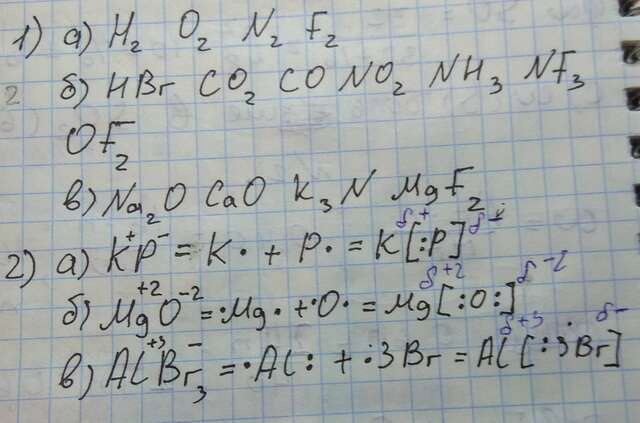 1) а) H₂ O₂ N₂ F₂
2 б) HBr CO₂ CO NO₂ NH₃ NF₃
OF₂
в) Na₂O CaO K₃N MgF₂
2) а) K⁺P⁻ = K· + P· = K^δ+ [:P]^δ-
б) Mg⁺²O⁻² = ·Mg· + ·O· = Mg^δ+2 [:O:]^δ-2
в) Al⁺³Br₃⁻ = ·Al: + :3Br = Al^δ+3 [:3Br]^δ-